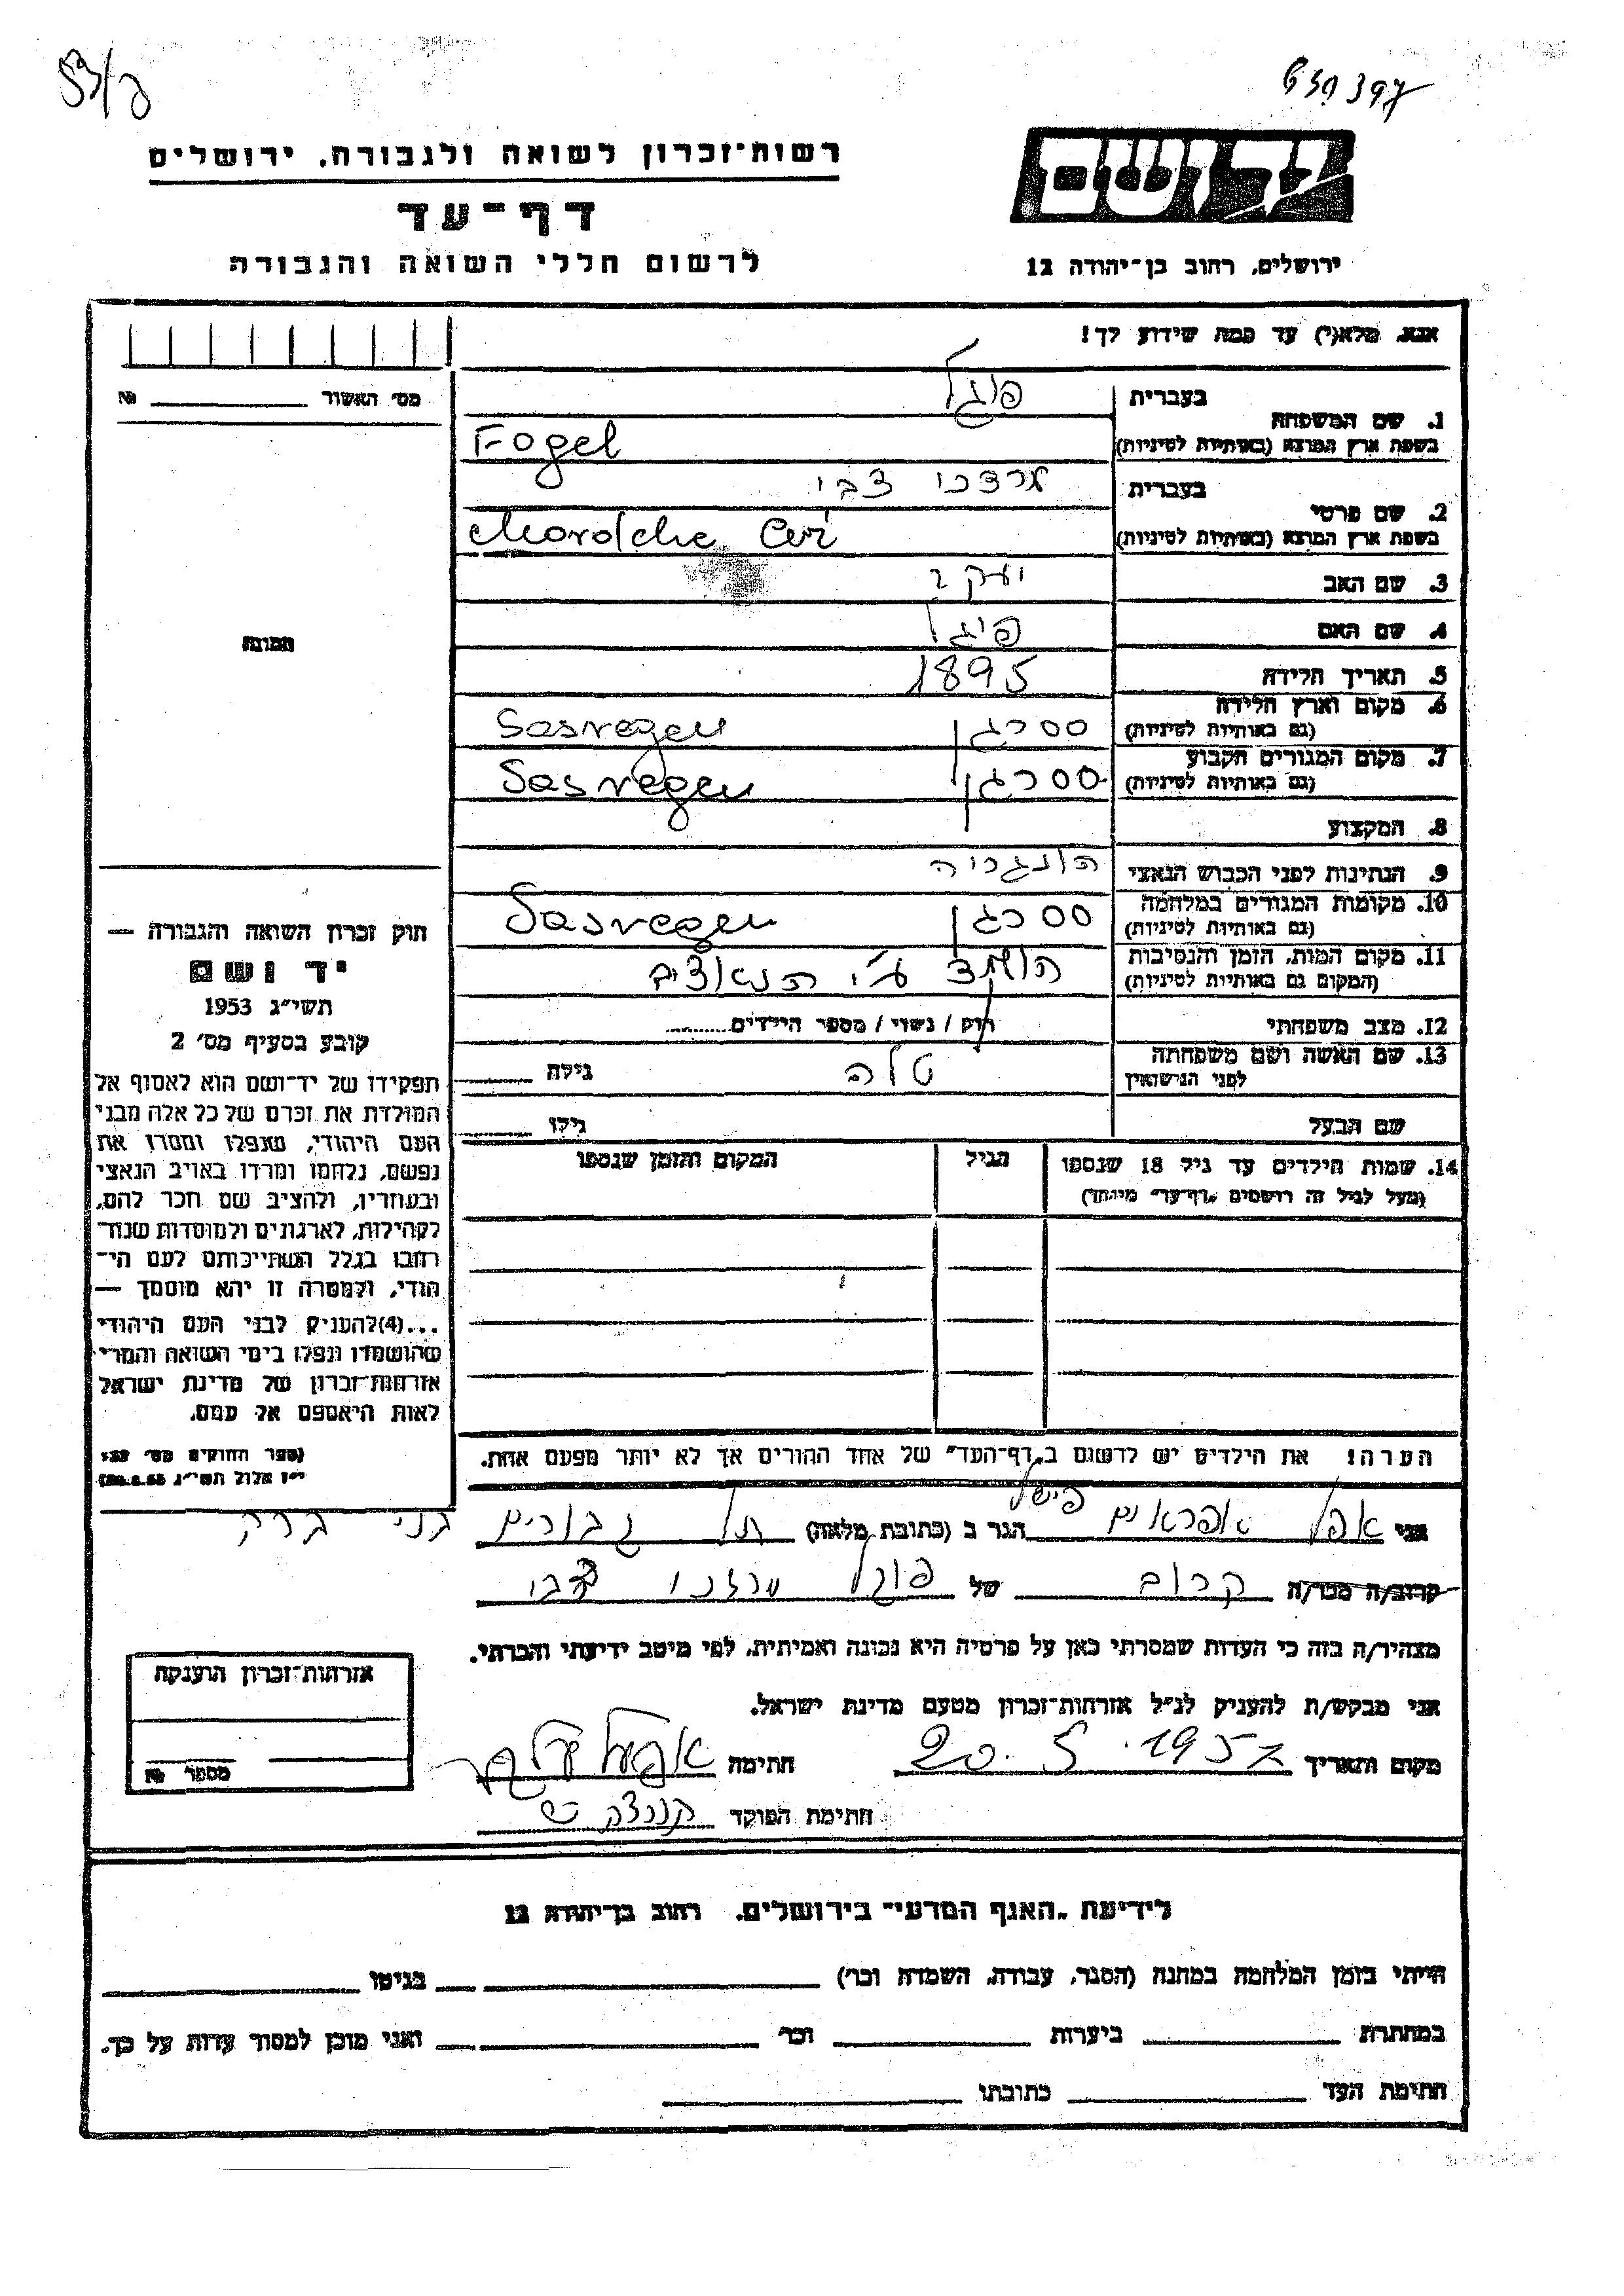 53/פ
רשות־זכרון לשואה ולגבורה, ירושלים
דף־עד
לרשום חללי השואה והגבורה
ידושם
ירושלים, רחוב בן־יהודה 12
אנא, מלא(י) עד כמה שידוע לך!
מס׳ האשור № 
1. שם המשפחה
בעברית פוגל
בשפת ארץ המוצא (באותיות לטיניות) Fogel
2. שם פרטי
בעברית מרדכי צבי
בשפת ארץ המוצא (באותיות לטיניות) Mordche Cvi
3. שם האב יעקב
4. שם האם פיגל
תמונה
5. תאריך הלידה 1895
6. מקום וארץ הלידה ססרגן Sasregen
(גם באותיות לטיניות)
7. מקום המגורים הקבוע ססרגן Sasregen
(גם באותיות לטיניות)
8. המקצוע
9. הנתינות לפני הכבוש הנאצי הונגריה
10. מקומות המגורים במלחמה ססרגן Sasregen
(גם באותיות לטיניות)
11. מקום המות, הזמן והנסיבות הושמד ע״י הנאצים
(המקום גם באותיות לטיניות)
12. מצב משפחתי רוק / נשוי / מספר הילדים
13. שם האשה ושם משפחתה לפני הנישואין טלה גילה
שם הבעל גילו
14. שמות הילדים עד גיל 18 שנספו הגיל המקום והזמן שנספו
(מעל לגיל זה רושמים „דף־עד״ מיוחד)
חוק זכרון השואה והגבורה —
יד ושם
תשי״ג 1953
קובע בסעיף מס׳ 2
תפקידו של יד־ושם הוא לאסוף אל
המולדת את זכרם של כל אלה מבני
העם היהודי, שנפלו ומסרו את
נפשם, נלחמו ומרדו באויב הנאצי
ובעוזריו, ולהציב שם וזכר להם,
לקהילות, לארגונים ולמוסדות שנח־
רבו בגלל השתייכותם לעם הי־
הודי, ולמטרה זו יהא מוסמך —
...(4)להעניק לבני העם היהודי
שהושמדו ונפלו בימי השואה והמרי
אזרחות־זכרון של מדינת ישראל
לאות היאספם אל עמם.
(ספר החוקים מס׳ 132
י״ז אלול תשי״ג 28.8.53)
הערה! את הילדים יש לרשום ב„דף־העד״ של אחד ההורים אך לא יותר מפעם אחת.
אני אפל אפראים פישל הגר ב (כתובת מלאה) תל גבורים בני ברק
קרוב/ה מכר/ה קרוב של פוגל מרדכי צבי
מצהיר/ה בזה כי העדות שמסרתי כאן על פרטיה היא נכונה ואמיתית, לפי מיטב ידיעתי והכרתי.
אני מבקש/ת להעניק לנ״ל אזרחות־זכרון מטעם מדינת ישראל.
מקום ותאריך 20.5.1957 חתימה
חתימת הפוקד
אזרחות־זכרון הוענקה
מספר №
לידיעת „האגף המדעי״ בירושלים, רחוב בן־יהודה 12
הייתי בזמן המלחמה במחנה (הסגר, עבודה, השמדה וכר׳) בגיטו
במחתרת ביערות וכר׳ ואני מוכן למסור עדות על כך.
חתימת העד כתובתו